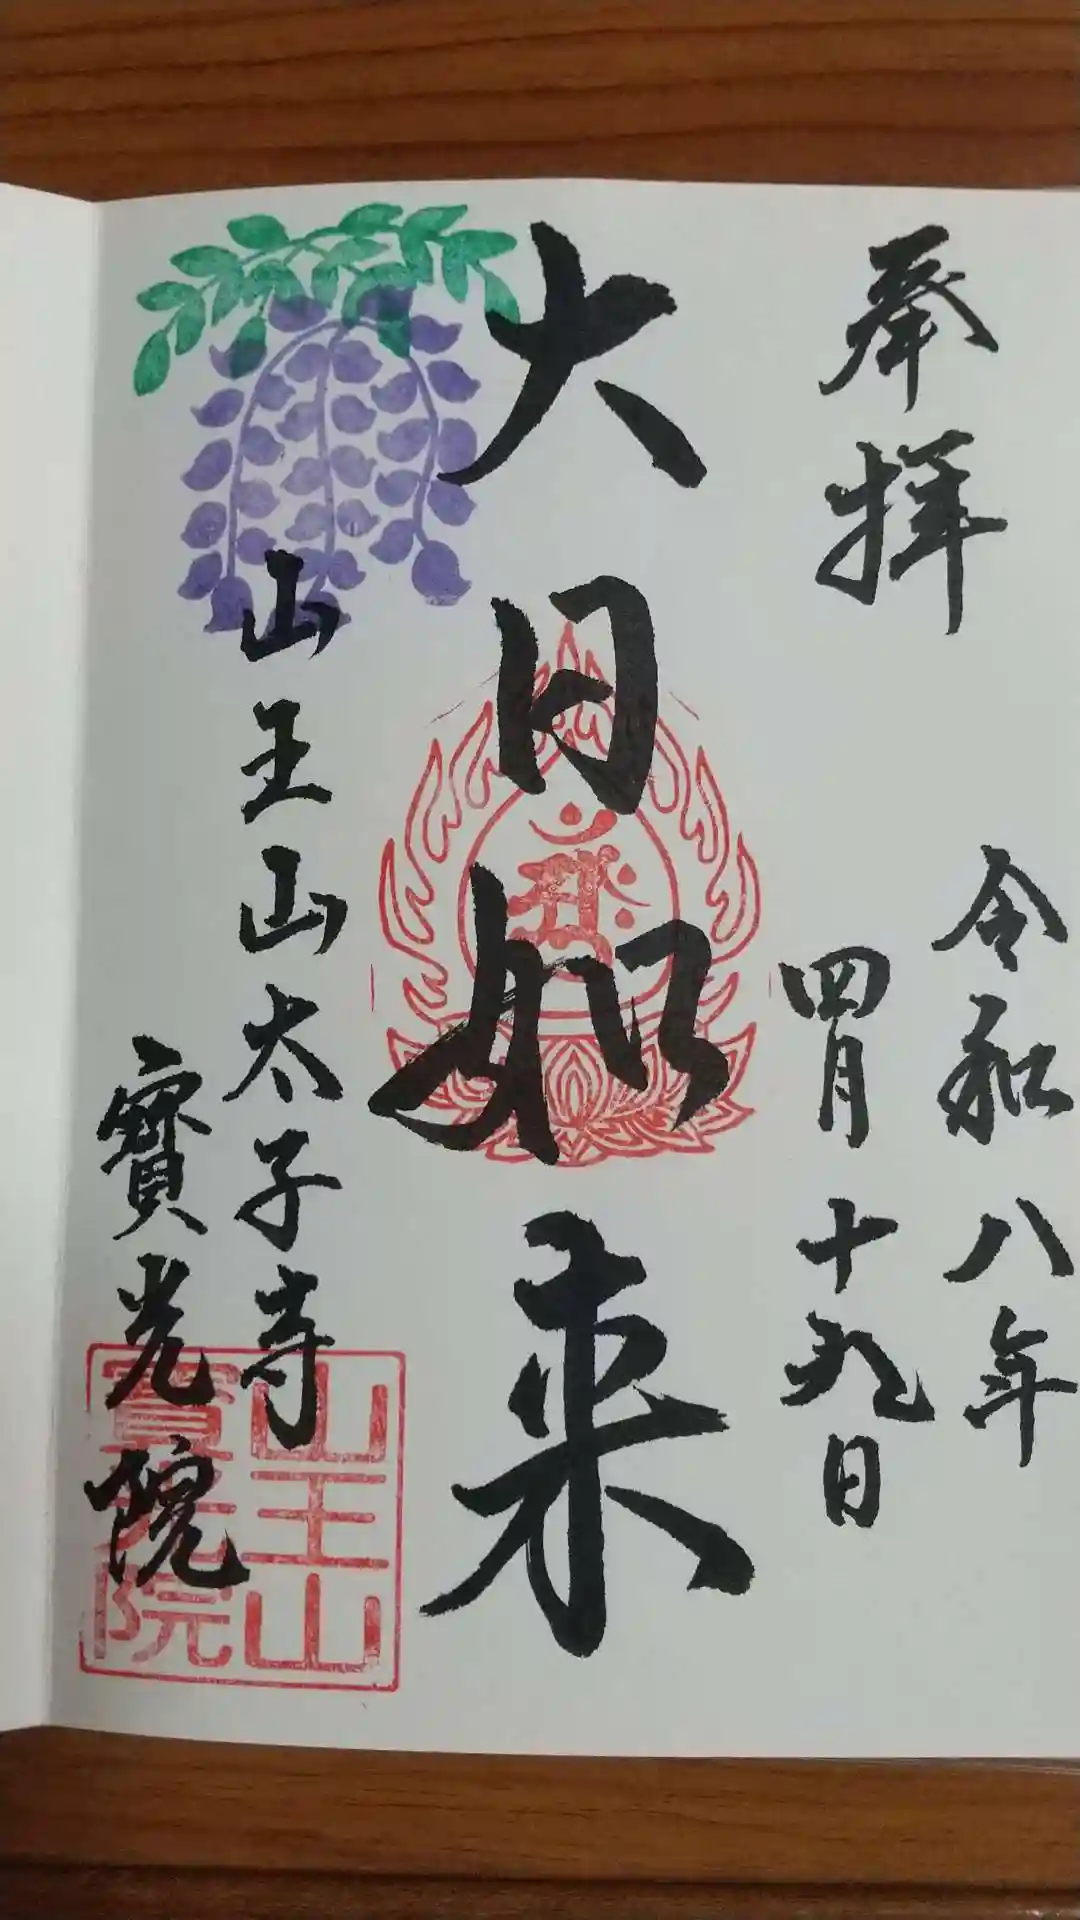 奉拝
令和八年
四月十九日
大日如来
山王山太子寺
寶光院
山王山
寶光院